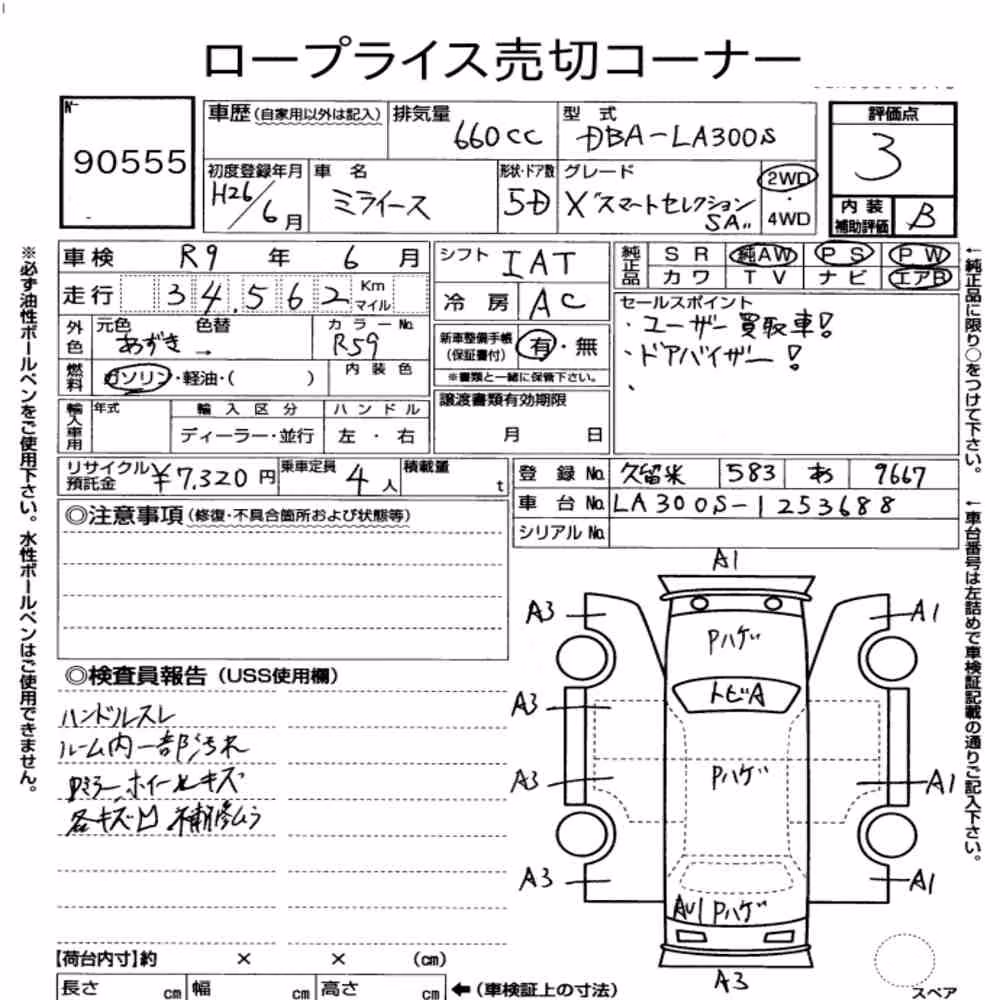 ロープライス売切コーナー
No. 90555
車歴(自家用以外は記入) 排気量 660cc 型式 DBA-LA300S 評価点 3
初度登録年月 H26/6月 車名 ミライース 形状・ドア数 5D グレード X"スマートセレクションSA" 2WD・4WD 内装補助評価 B
車検 R9年 6月 シフト IAT 純正品 SR 純AW PS PW
カワ TV ナビ エアB
走行 34,562 Km マイル 冷房 AC
セールスポイント
・ユーザー買取車!
・ドアバイザー!
・
外色 元色 あずき 色替 → カラーNo. R59
新車整備手帳(保証書付) 有・無
※書類と一緒に保管下さい。
燃料 ガソリン・軽油・( ) 内装色
譲渡書類有効期限
月 日
輸入車用 年式 輸入区分 ハンドル
ディーラー・並行 左・右
リサイクル預託金 ¥7,320円 乗車定員 4人 積載量 t
登録No. 久留米 583 あ 9667
車台No. LA300S-1253688
シリアルNo.
◎注意事項(修復・不具合箇所および状態等)
◎検査員報告(USS使用欄)
ハンドルスレ
ルーム内一部汚れ
ホイールキズ
各キズ凹 補修ムラ
A1
A3 A1
Pハゲ
トビA
A3
Pハゲ
A3 A1
A3 A1
AU1 Pハゲ
A3
スペア
【荷台内寸】約 × × (cm)
長さ cm 幅 cm 高さ cm ←(車検証上の寸法)
※必ず油性ボールペンをご使用下さい。水性ボールペンはご使用できません。
←純正品に限り○をつけて下さい。
←車台番号は左詰めで車検証記載の通りご記入下さい。